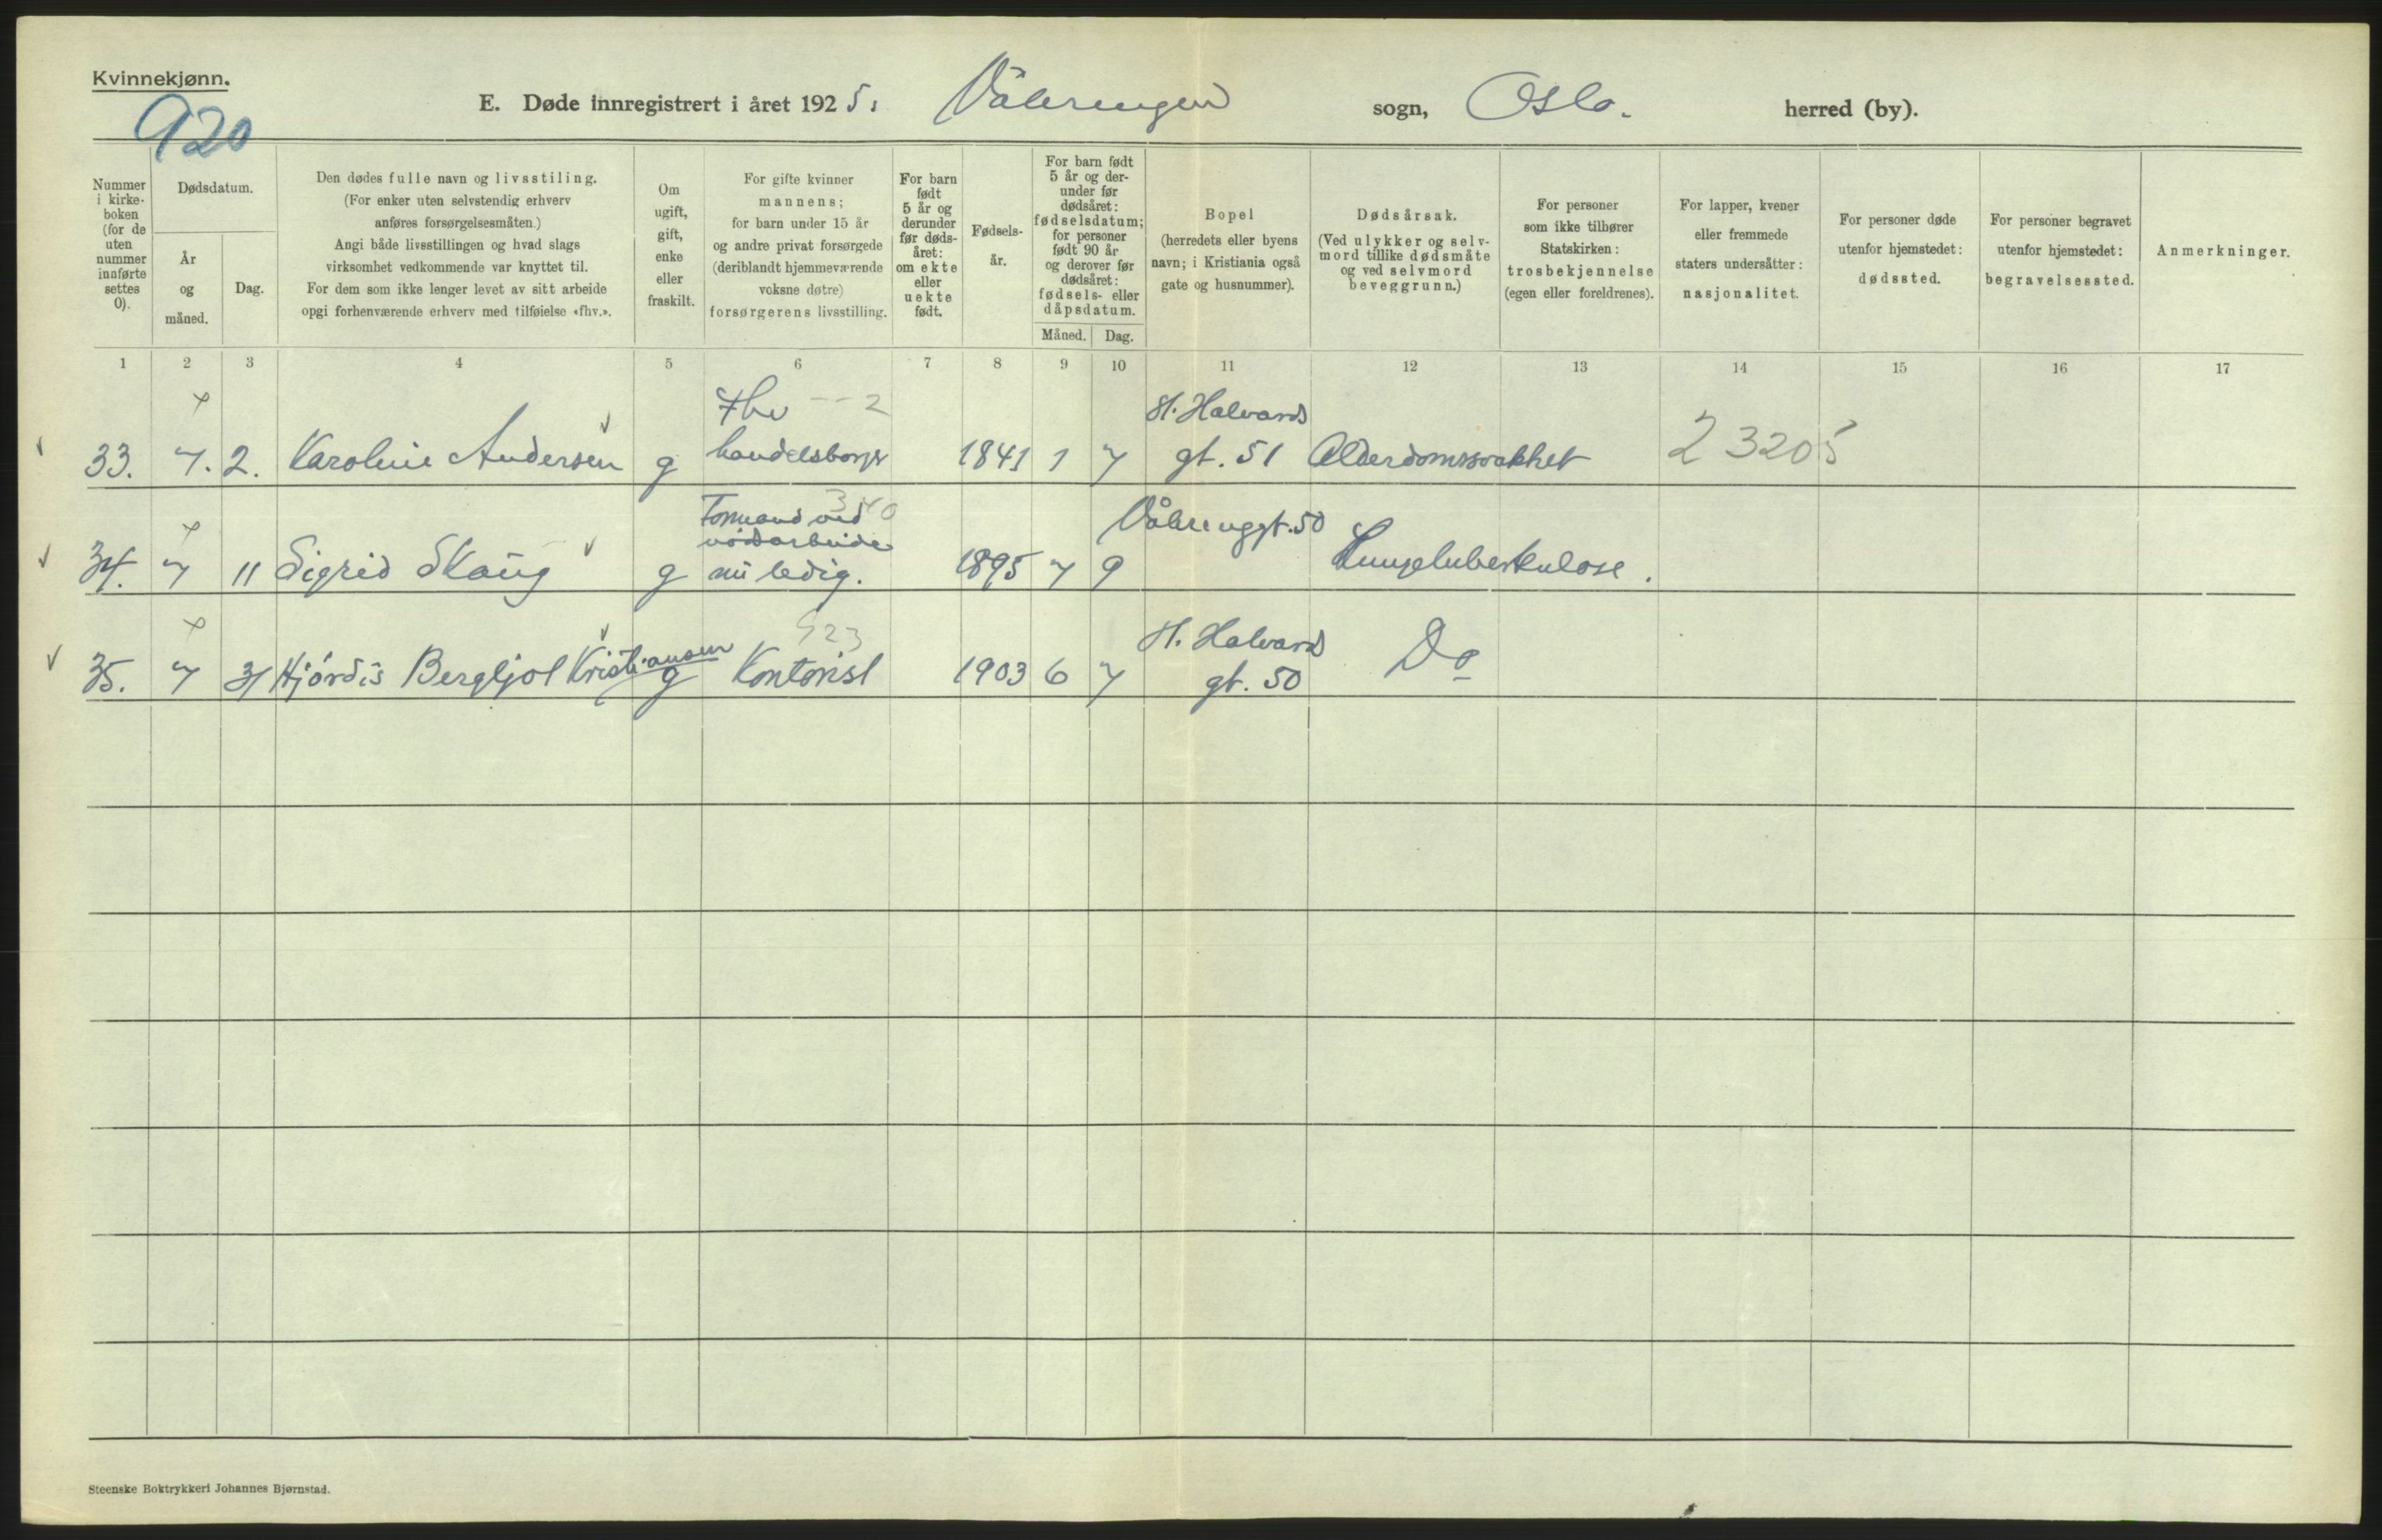 Kvinnekjønn.
920
E. Døde innregistrert i året 1925. Vålerengen sogn, Oslo. herred (by).
Nummer i kirke-boken (for de uten nummer innførte settes 0).
Dødsdatum.
År og måned.
Dag.
Den dødes fulle navn og livsstiling.
(For enker uten selvstendig erhverv
anføres forsørgelsesmåten.)
Angi både livsstillingen og hvad slags
virksomhet vedkommende var knyttet til.
For dem som ikke lenger levet av sitt arbeide
opgi forhenværende erhverv med tilføielse «fhv.».
Om
ugift,
gift,
enke
eller
fraskilt.
For gifte kvinner
mannens;
for barn under 15 år
og andre privat forsørgede
(deriblandt hjemmeværende
voksne døtre)
forsørgerens livsstilling.
For barn
født
5 år og
derunder
før døds-
året:
om ekte
eller
uekte
født.
Fødsels-
år.
For barn født
5 år og der-
under før
dødsåret:
fødselsdatum;
for personer
født 90 år
og derover før
dødsåret:
fødsels- eller
dåpsdatum.
Måned. Dag.
Bopel
(herredets eller byens
navn; i Kristiania også
gate og husnummer).
Dødsårsak.
(Ved ulykker og selv-
mord tillike dødsmåte
og ved selvmord
beveggrunn.)
For personer
som ikke tilhører
Statskirken:
trosbekjennelse
(egen eller foreldrenes).
For lapper, kvener
eller fremmede
staters undersåtter:
nasjonalitet.
For personer døde
utenfor hjemstedet:
dødssted.
For personer begravet
utenfor hjemstedet:
begravelsessted.
Anmerkninger.
1 2 3 4 5 6 7 8 9 10 11 12 13 14 15 16 17
Fhv -- 2 St. Halvards
33. 7. 2. Karoline Andersen g handelsborger 1841 1 7 gt. 51 Alderdomssvakhet 23205
Formand ved 340 Vålerenggt. 50
nødsarbeide
34. 7 11 Sigrid Skaug g nu ledig. 1895 7 9 Lungetuberkulose.
923 St. Halvards
35. 7 31 Hjørdis Bergljot Kristiansen g Kontorist 1903 6 7 gt. 50 Do
Steenske Boktrykkeri Johannes Bjørnstad.